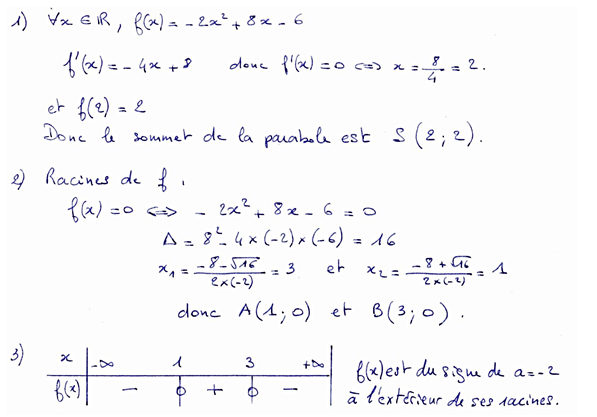 1) ∀x ∈ ℝ, f(x) = -2x² + 8x - 6
f'(x) = -4x + 8 donc f'(x) = 0 ⟺ x = 8/4 = 2.
et f(2) = 2
Donc le sommet de la parabole est S (2 ; 2).
2) Racines de f.
f(x) = 0 ⟺ -2x² + 8x - 6 = 0
Δ = 8² - 4 × (-2) × (-6) = 16
x₁ = (-8 - √16)/(2 × (-2)) = 3 et x₂ = (-8 + √16)/(2 × (-2)) = 1
donc A(1 ; 0) et B(3 ; 0).
3) x | -∞ 1 3 +∞
f(x) | - 0 + 0 -
f(x) est du signe de a = -2
à l'extérieur de ses racines.